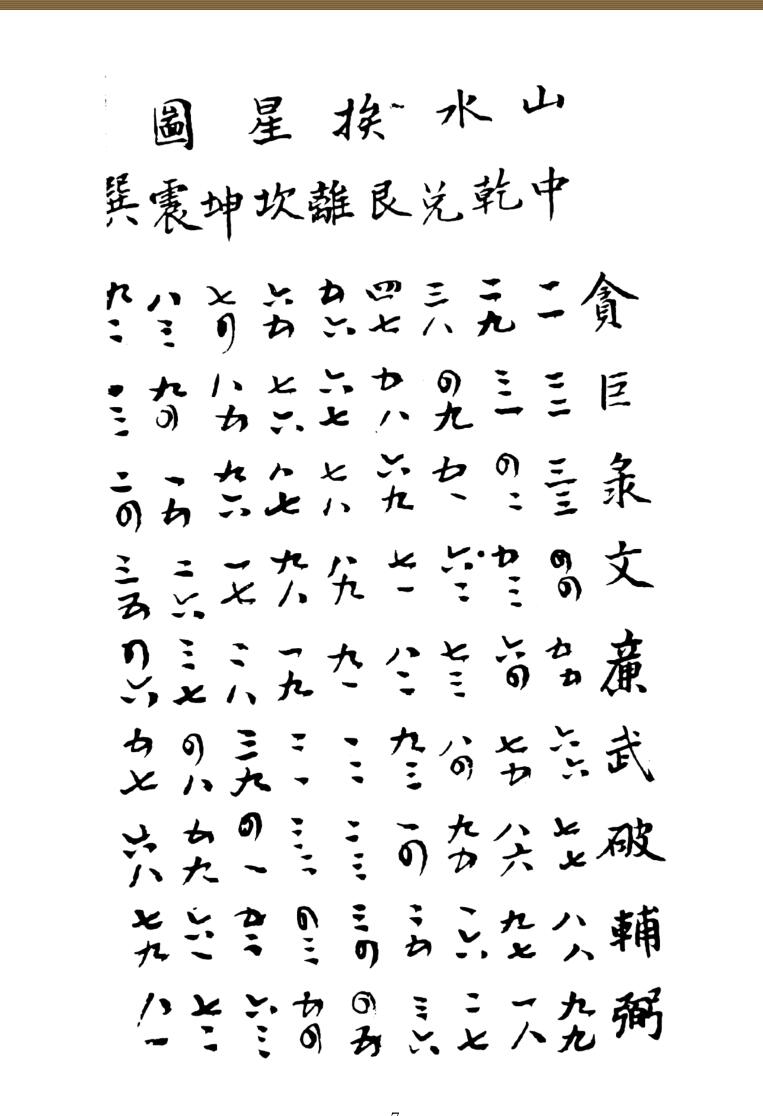 山水挨星圖
中乾兌艮離坎坤震巽
貪 一一 二九 三八 四七 五六 六五 七四 八三 九二
巨 二二 三一 四九 五八 六七 七六 八五 九四 一三
彔 三三 四二 五一 六九 七八 八七 九六 一五 二四
文 四四 五三 六二 七一 八九 九八 一七 二六 三五
廉 五五 六四 七三 八二 九一 一九 二八 三七 四六
武 六六 七五 八四 九三 一二 二一 三九 四八 五七
破 七七 八六 九五 一四 二三 三二 四一 五九 六八
輔 八八 九七 一六 二五 三四 四三 五二 六一 七九
弼 九九 一八 二七 三六 四五 五四 六三 七二 八一